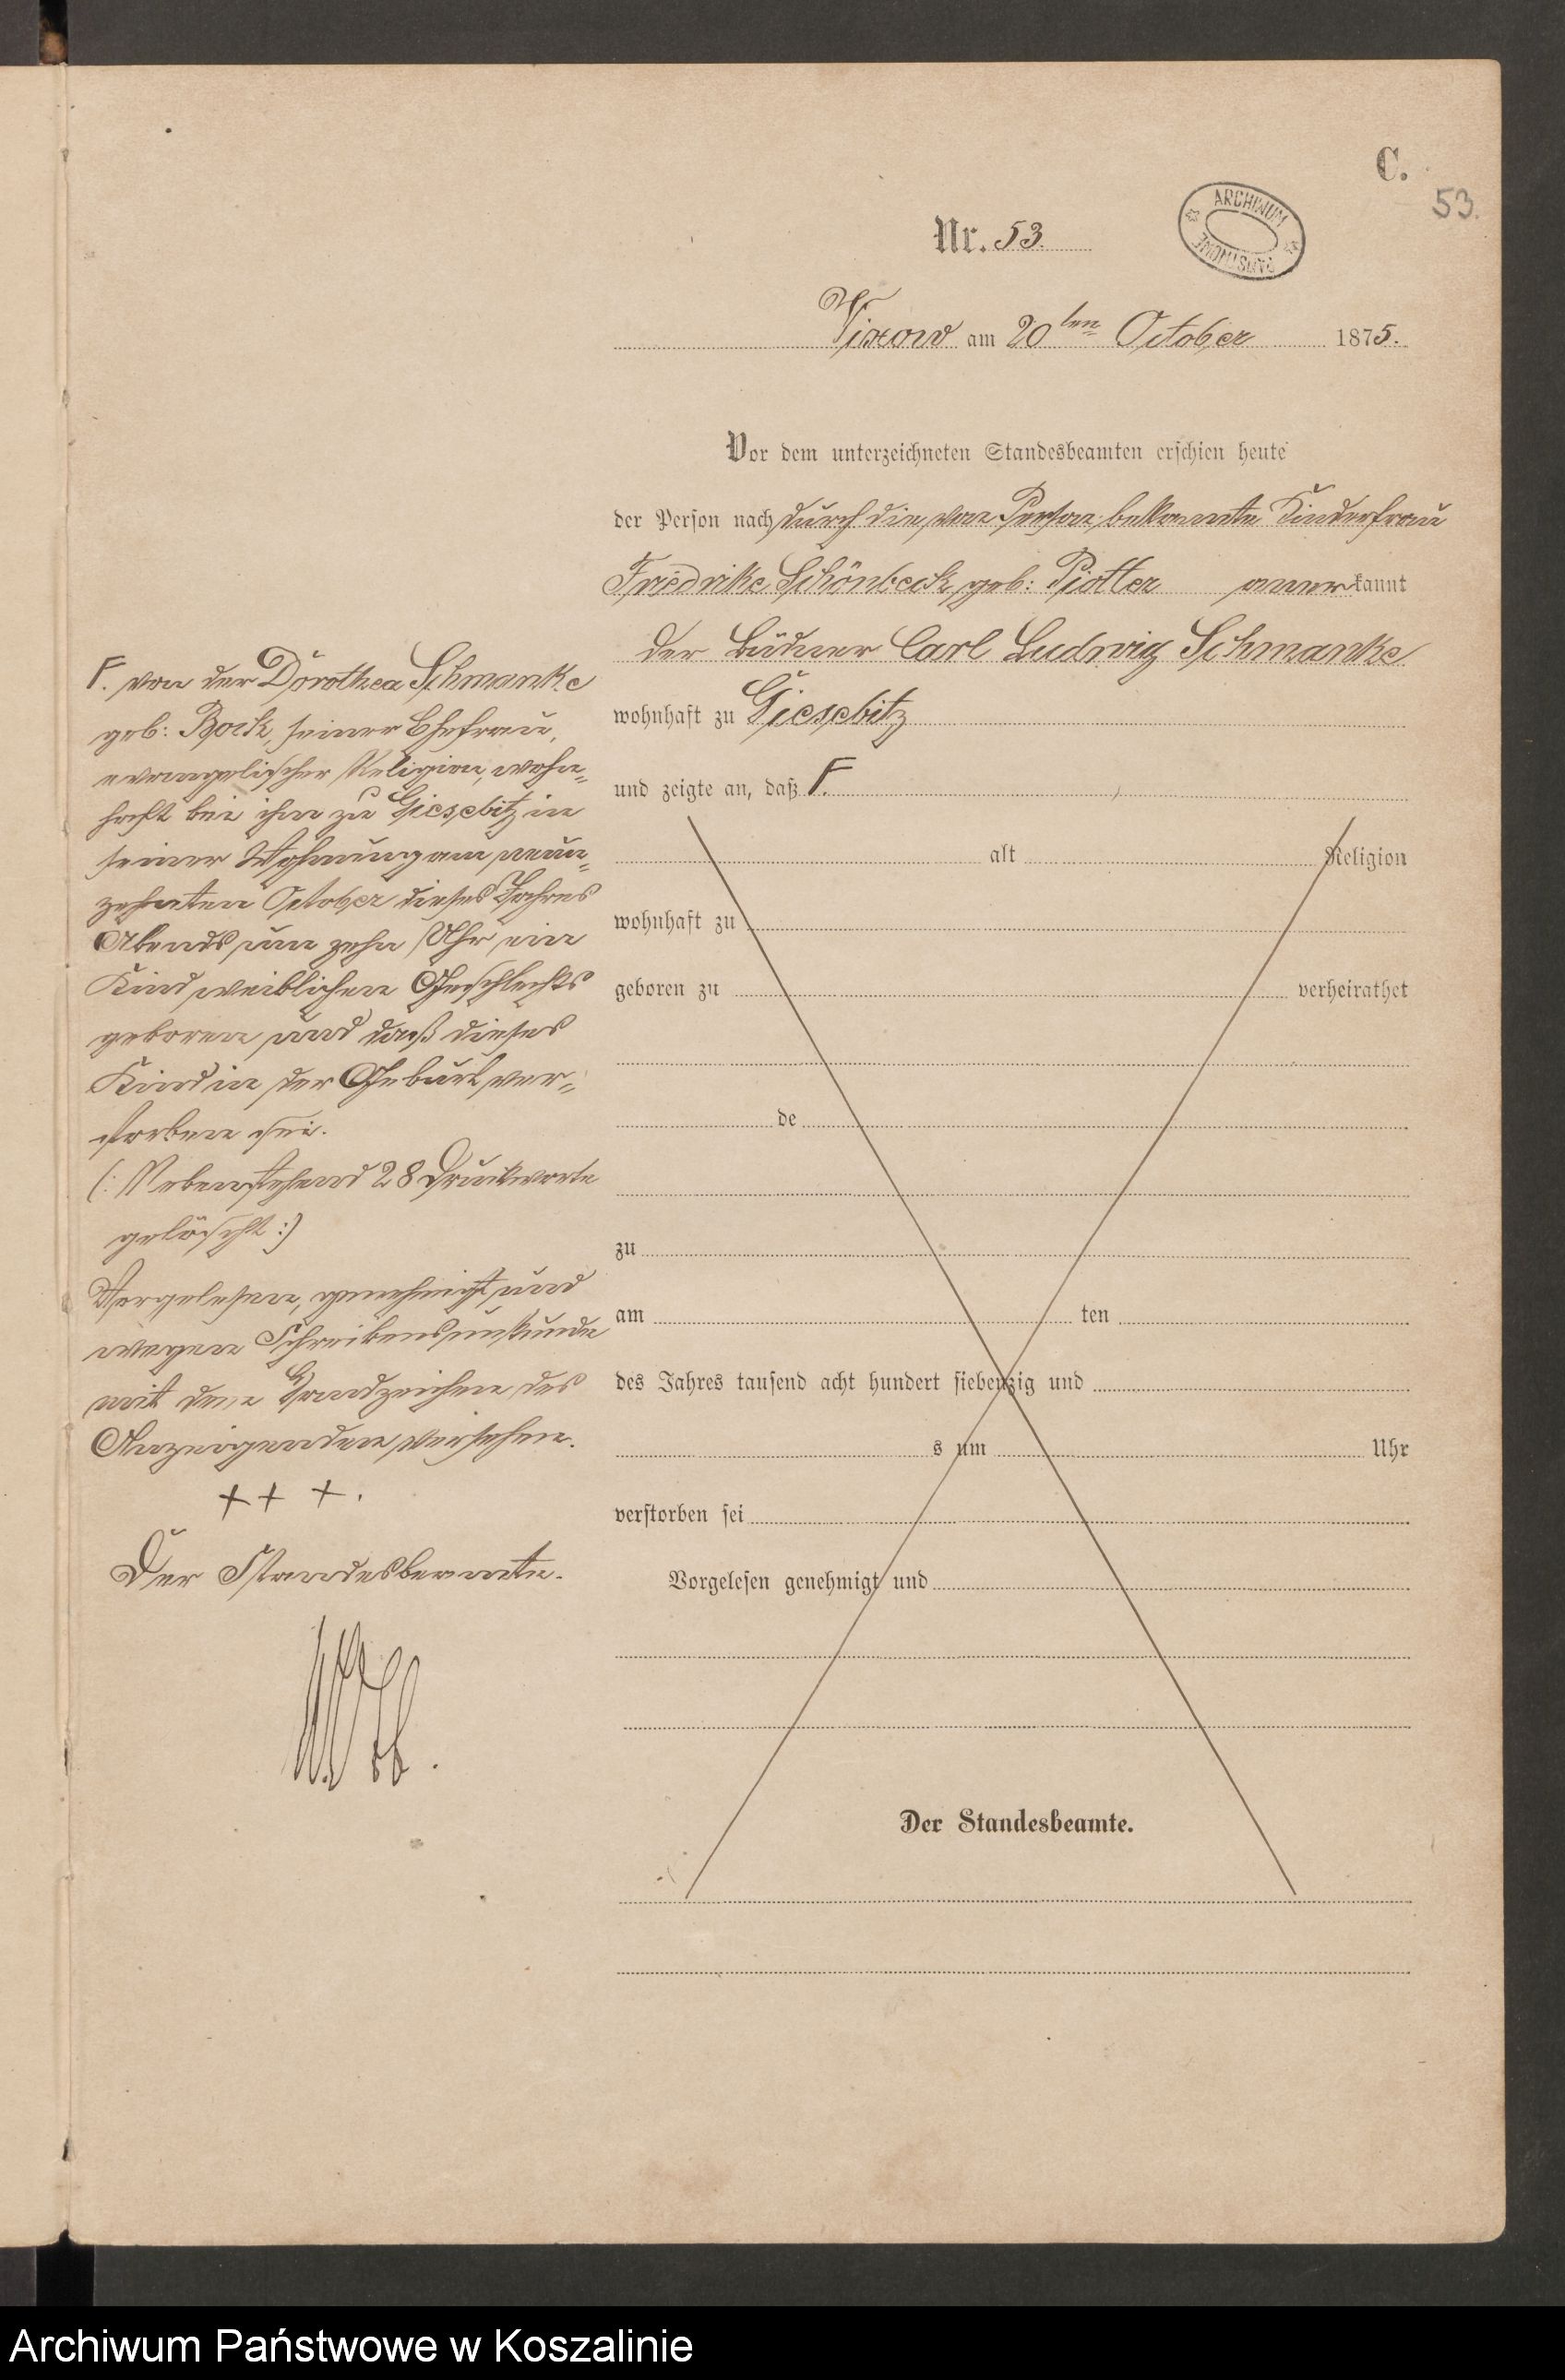 C.
53.
Nr. 53.
ARCHIWUM
PAŃSTWOWE
Vixow am 20ten October 1875.
Vor dem unterzeichneten Standesbeamten erschien heute
der Person nach durch die, von Person bekannte Kinderfrau
Friedrike Schönbeck, geb: Piotter anerkannt
der Büdner Carl Ludwig Schmanke
wohnhaft zu Giesebitz
und zeigte an, daß F.
alt Religion
wohnhaft zu
geboren zu verheirathet
de
zu
am ten
des Jahres tausend acht hundert siebenzig und
s um Uhr
verstorben sei
Vorgelesen genehmigt und
Der Standesbeamte.
F. von der Dorothea Schmanke
geb: Bock, seiner Ehefrau,
evangelischer Religion, wohn=
haft bei ihm zu Giesebitz in
seiner Wohnung am neun=
zehnten October dieses Jahres
Abends um zehn Uhr ein
Kind weiblichen Geschlechts
geboren und daß dieses
Kind in der Geburt ver=
storben sei.
(: Nebenstehend 28 Druckworte
gelöscht :)
Vorgelesen, genehmigt und
wegen Schreibensunkunde
mit dem Handzeichen des
Anzeigenden versehen.
+ + +.
Der Standesbeamte.
Archiwum Państwowe w Koszalinie